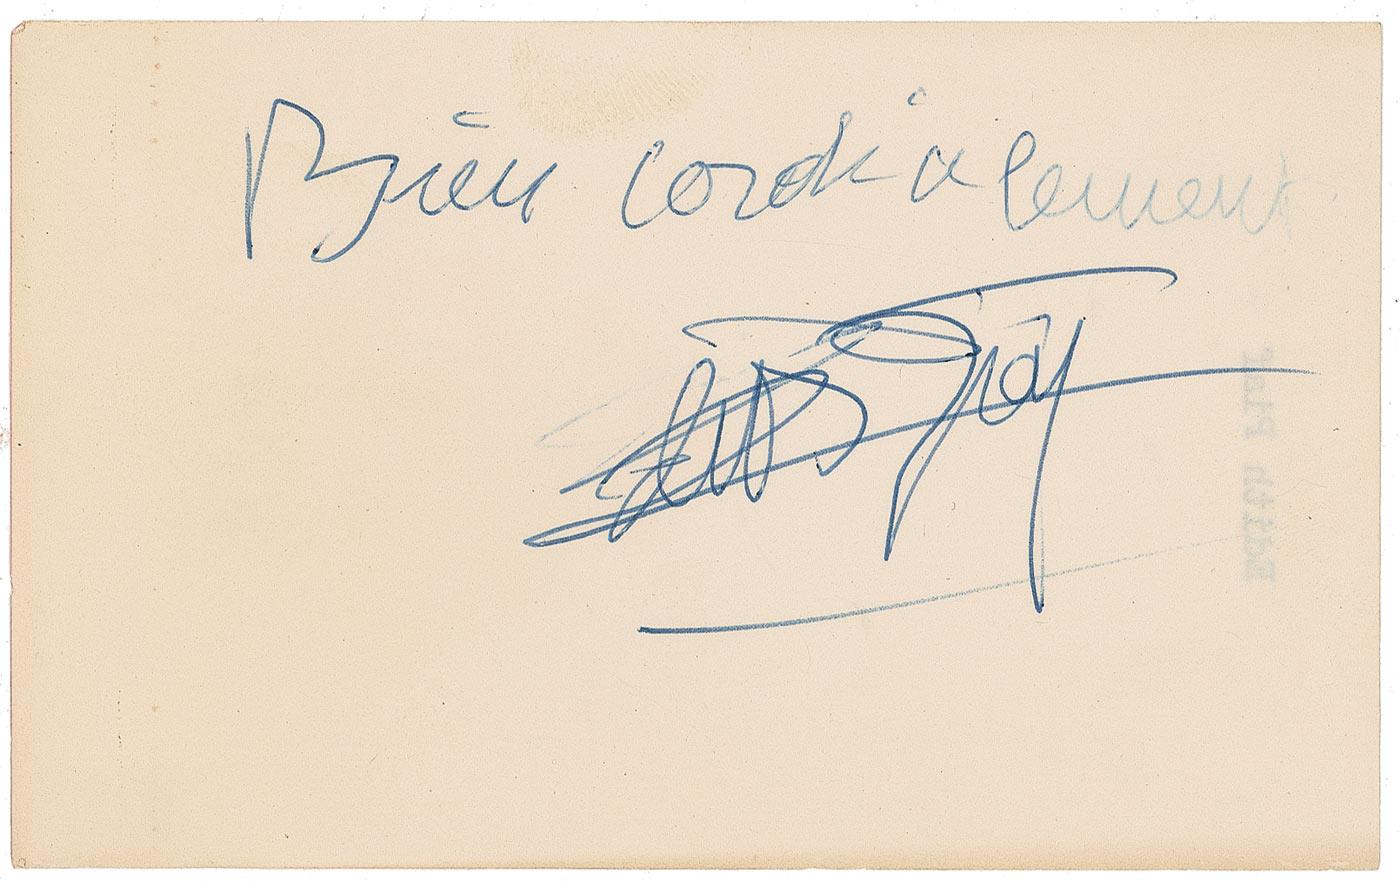 Bien cordialement
Edith Piaf
Edith Piaf